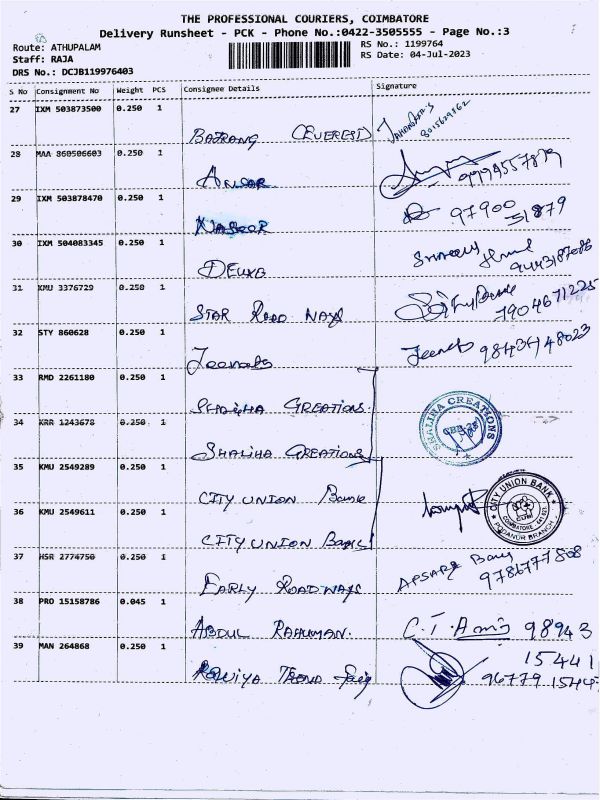 THE PROFESSIONAL COURIERS, COIMBATORE
Delivery Runsheet - PCK - Phone No.:0422-3505555 - Page No.:3
Route: ATHUPALAM RS No.: 1199764
Staff: RAJA RS Date: 04-Jul-2023
DRS No.: DCJB119976403
S No Consignment No Weight PCS Consignee Details Signature
27 IXM 503873500 0.250 1
BAJRANG (EVEREST) 8015629862
28 MAA 860506603 0.250 1
ANSAR 9994557879
29 IXM 503878470 0.250 1
NASEER 97900 51879
30 IXM 504083345 0.250 1
DELUXE 9443187086
31 KMU 3376729 0.250 1
STAR ROAD WAYS 7904671225
32 STY 860628 0.250 1
Jeenath Jeenath
33 RMD 2261180 0.250 1
SHALIHA CREATIONS
34 KRR 1243678 0.250 1
SHALIHA CREATIONS SHALIHA CREATIONS
35 KMU 2549289 0.250 1
CITY UNION Bank
36 KMU 2549611 0.250 1
CITY UNION Bank CITY UNION BANK COIMBATORE PODANUR BRANCH
37 HSR 2774750 0.250 1
EARLY ROADWAYS APSARA
38 PRO 15158786 0.045 1
ABDUL RAHUMAN. C.T. 98943
39 MAN 264868 0.250 1 15441
TREND 96779 1544